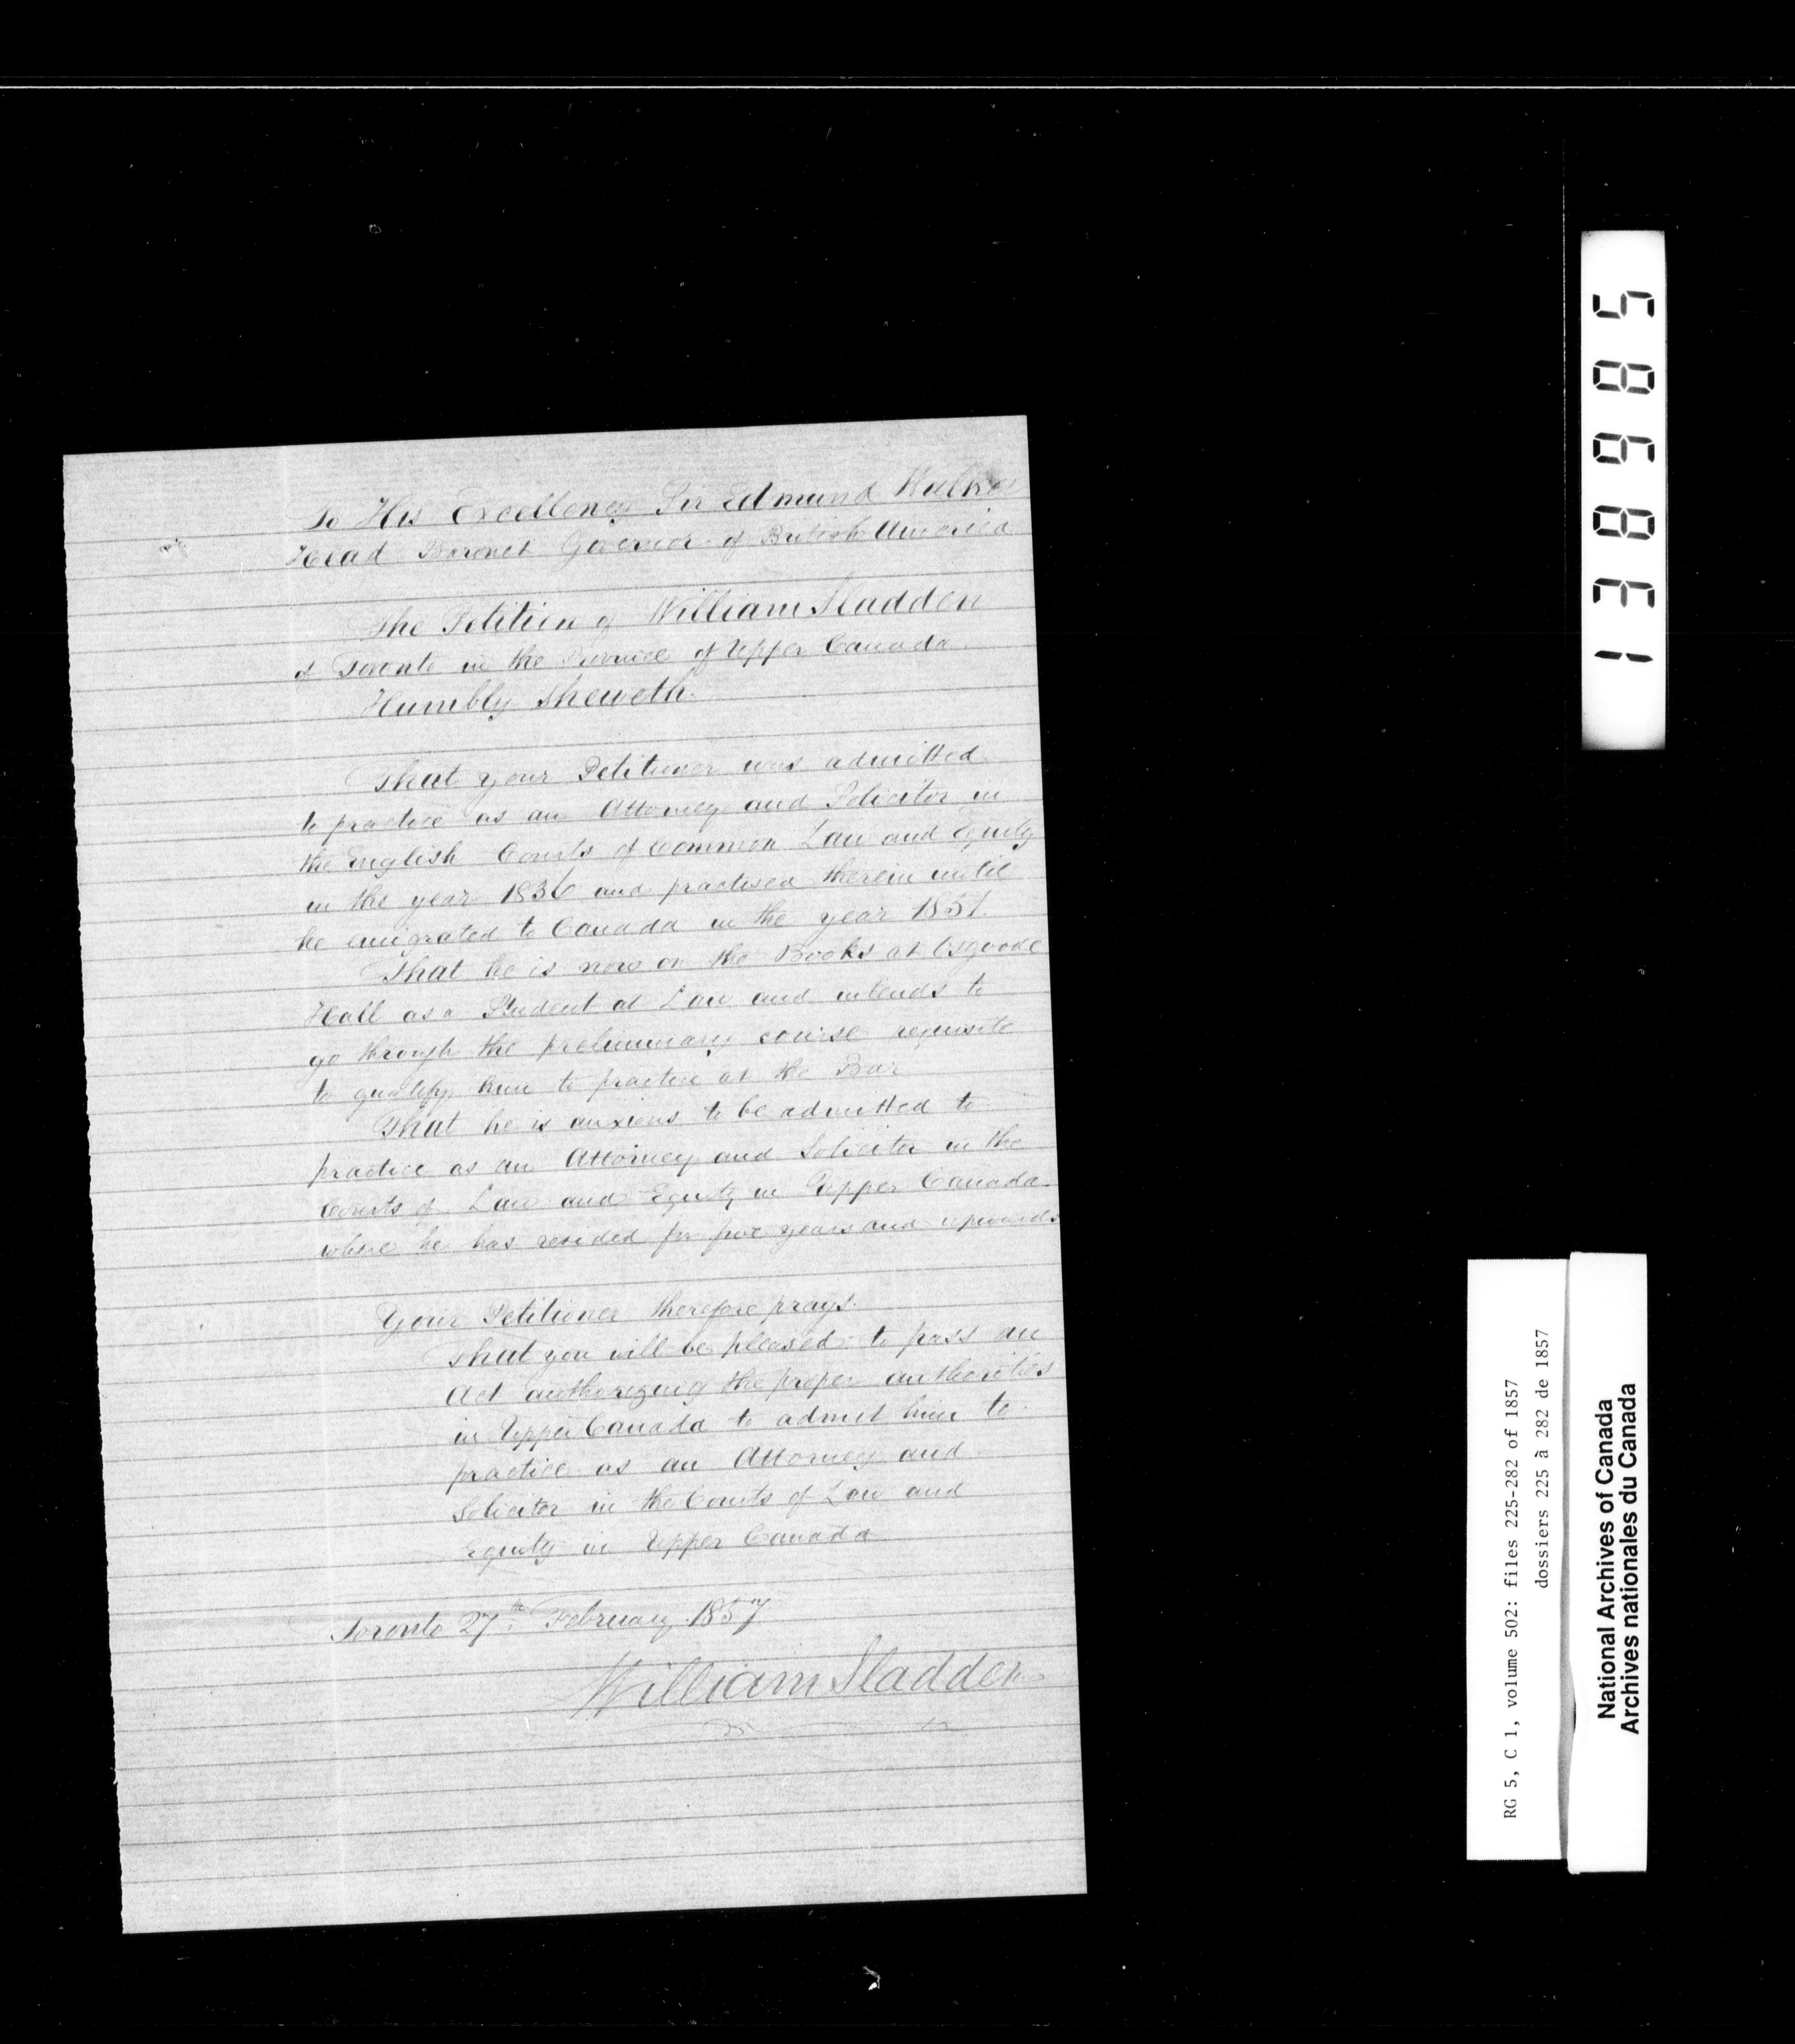 To His Excellency Sir Edmund Walker
Head Baronet Governor of British America
The Petition of William Sladden
of Toronto in the Province of Upper Canada
Humbly sheweth.
That your Petitioner was admitted
to practice as an Attorney and Solicitor in
the English Courts of Common Law and Equity
in the year 1836 and practised therein until
he emigrated to Canada in the year 1851.
That he is now on the Books at Osgoode
Hall as a Student at Law and intends to
go through the preliminary course requisite
to qualify him to practice at the Bar
That he is anxious to be admitted to
practice as an Attorney and Solicitor in the
Courts of Law and Equity in Upper Canada
where he has resided for five years and upwards
Your Petitioner therefore prays.
That you will be pleased to pass an
Act authorizing the proper authorities
in Upper Canada to admit him to
practice as an Attorney and
Solicitor in the Courts of Law and
Equity in Upper Canada
Toronto 27th February 1857
William Sladden
138985
RG 5, C 1, volume 502: files 225-282 of 1857
dossiers 225 à 282 de 1857
National Archives of Canada
Archives nationales du Canada